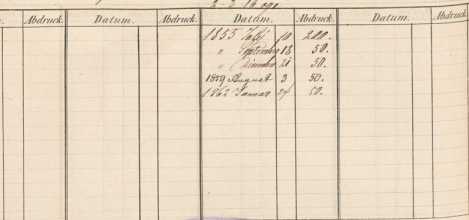 Abdruck. Datum. Abdruck. Datum. Abdruck. Datum. Abdruck.
1855 July 10 200.
" September 18 50.
" Dezember 21 50.
1859 August 3 50.
1862 Januar 27 50.